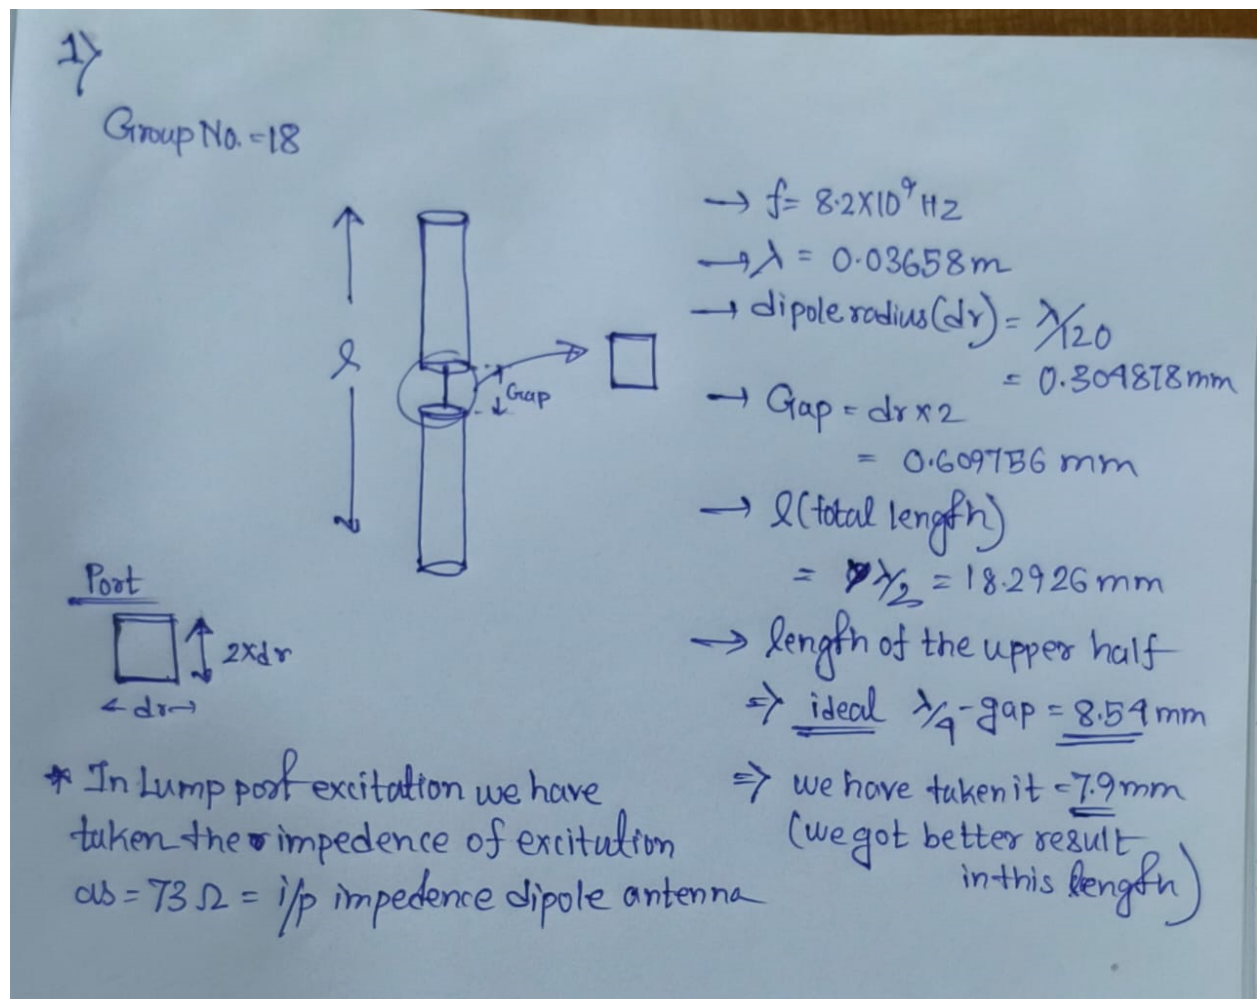 1)
Group No. = 18
l
Gap
→ f = 8.2X10⁹ Hz
→ λ = 0.03658m
→ dipole radius (dr) = λ/120
= 0.304878mm
→ Gap = dr x 2
= 0.609756 mm
→ l (total length)
= λ/2 = 18.2926 mm
→ length of the upper half
⇒ ideal λ/4 - gap = 8.54 mm
⇒ we have taken it = 7.9 mm
(we got better result
in this length)
Port
2xdr
← dr →
* In Lump port excitation we have
taken the impedence of excitution
as = 73 Ω = i/p impedence dipole antenna